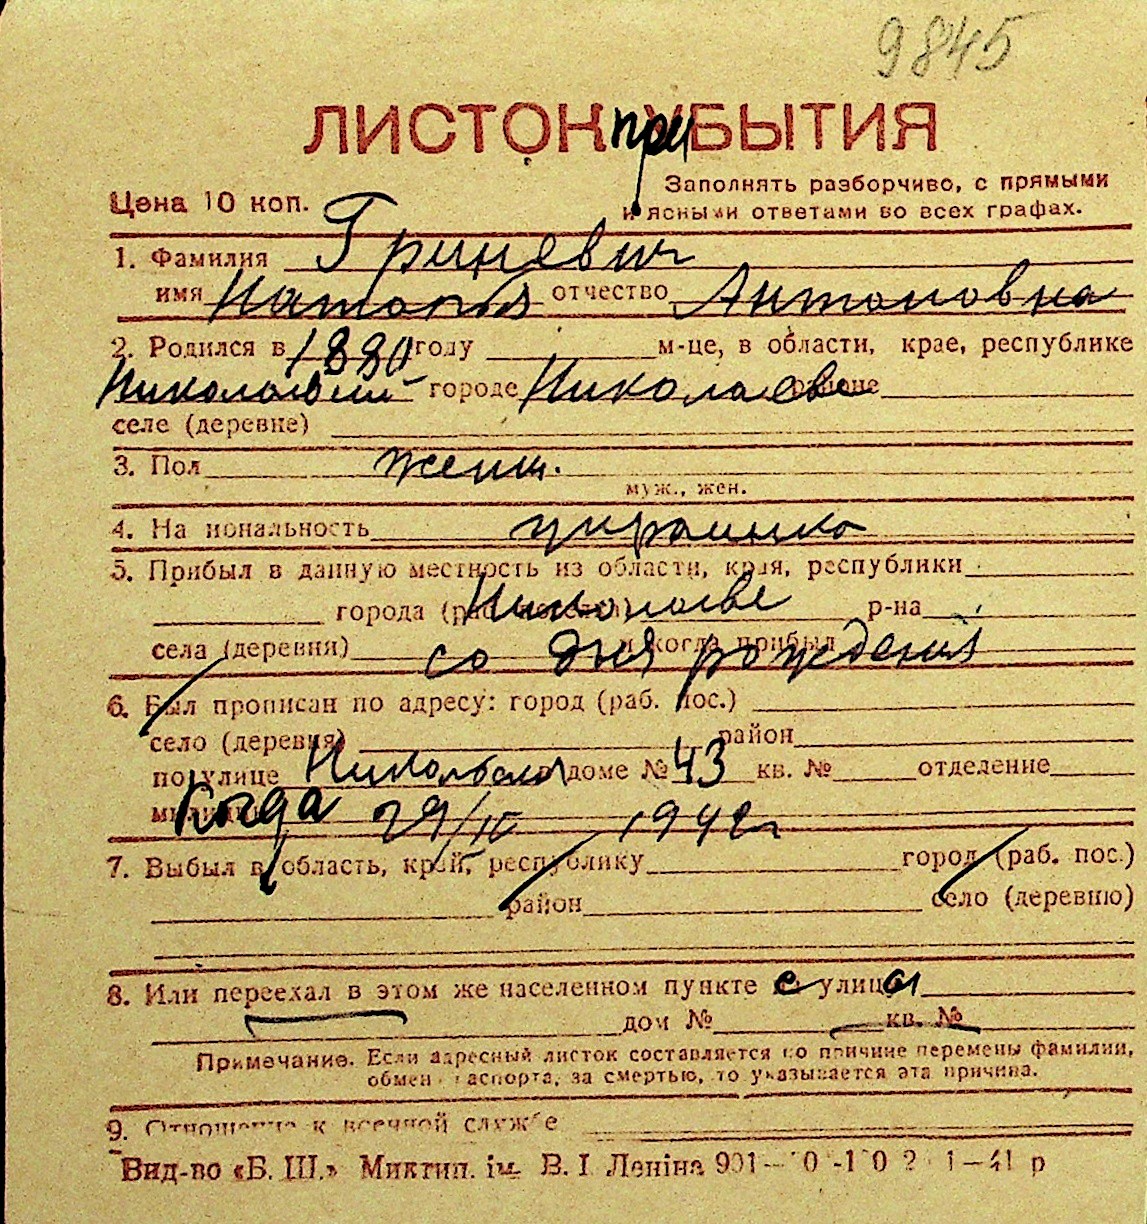 9845
ЛИСТОК прибытия
Цена 10 коп.
Заполнять разборчиво, с прямыми
и ясными ответами во всех графах.
1. Фамилия Гриневич
имя Наталья отчество Антоновна
2. Родился в 1880 году м-це, в области, крае, республике
Николаевский городе Николаеве районе
селе (деревне)
3. Пол женщ.
муж., жен.
4. Национальность украинка
5. Прибыл в данную местность из области, края, республики
города (раб. поселка) Николаеве р-на
села (деревня) и когда прибыл со дня рождения
6. Был прописан по адресу: город (раб. пос.)
село (деревня) район
по улице Никольская доме № 43 кв. № отделение
милиции Когда 29/IV 1942 г
7. Выбыл в область, край, республику город (раб. пос.)
район село (деревню)
8. Или переехал в этом же населенном пункте с улицы
дом № кв. №
Примечание. Если адресный листок составляется по причине перемены фамилии,
обмен паспорта, за смертью, то указывается эта причина.
9. Отношение к военной службе
Вид-во «Б. Ш.» Миктип. ім. В. І Леніна